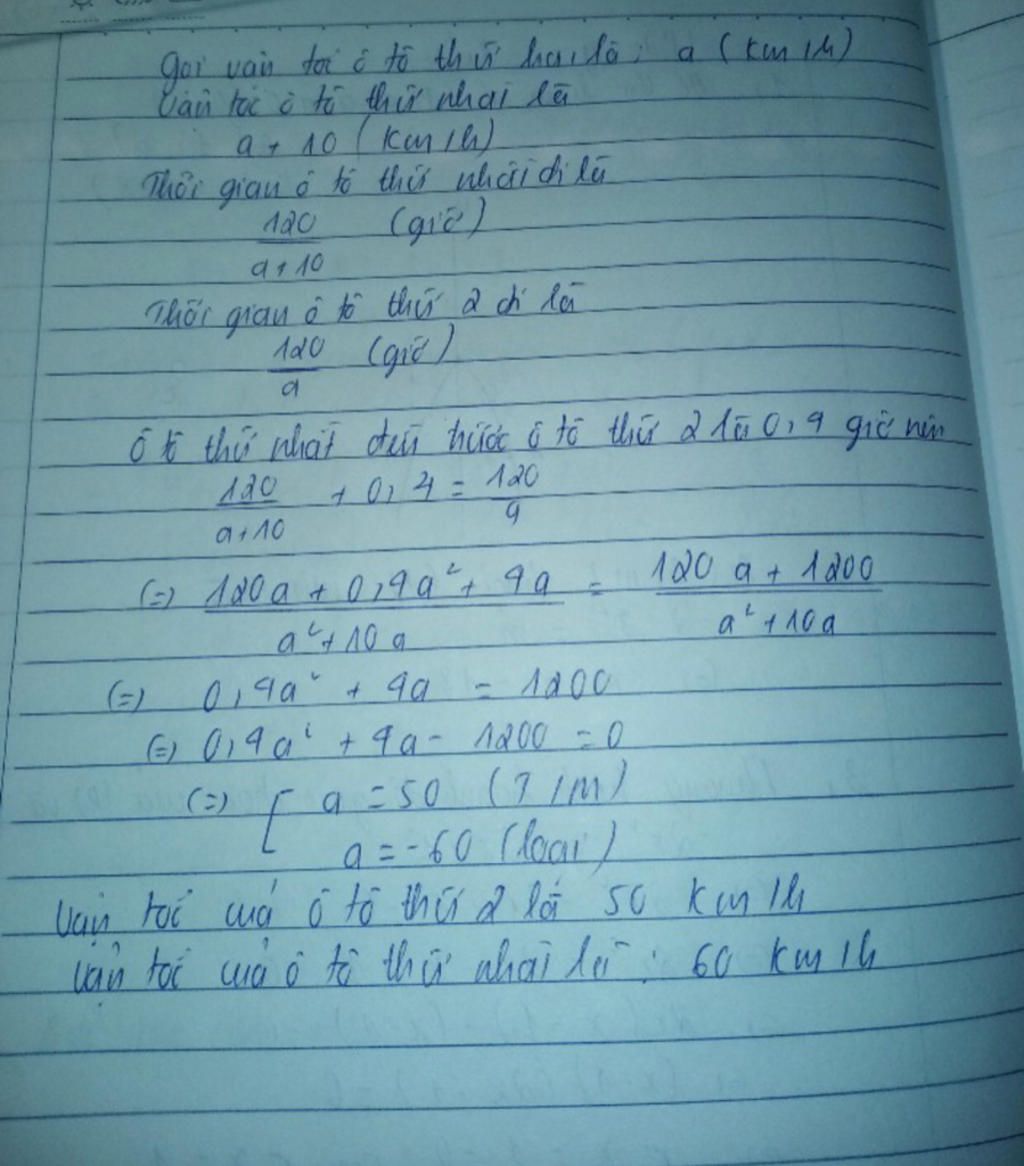 Gọi vận tốc ô tô thứ hai là: a (km/h)
Vận tốc ô tô thứ nhất là
a + 10 (km/h)
Thời gian ô tô thứ nhất đi là
120/(a+10) (giờ)
Thời gian ô tô thứ 2 đi là
120/a (giờ)
Ô tô thứ nhất đến trước ô tô thứ 2 là 0,4 giờ nên
120/(a+10) + 0,4 = 120/a
(=) (120a + 0,4a² + 4a)/(a² + 10a) = (120a + 1200)/(a² + 10a)
(=) 0,4a² + 4a = 1200
(=) 0,4a² + 4a - 1200 = 0
(=) [ a = 50 (T/m)
a = -60 (loại)
Vận tốc của ô tô thứ 2 là 50 km/h
Vận tốc của ô tô thứ nhất là: 60 km/h